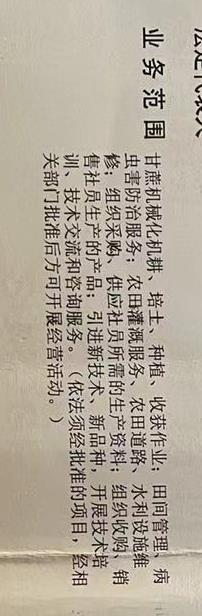 法定代表人
业务范围
甘蔗机械化机耕、培土、种植、收获作业；田间管理、病
虫害防治服务；农田灌溉服务、农田道路、水利设施维
修；组织采购、供应社员所需的生产资料；组织收购、销
售社员生产的产品；引进新技术、新品种，开展技术培
训、技术交流和咨询服务。（依法须经批准的项目，经相
关部门批准后方可开展经营活动。）